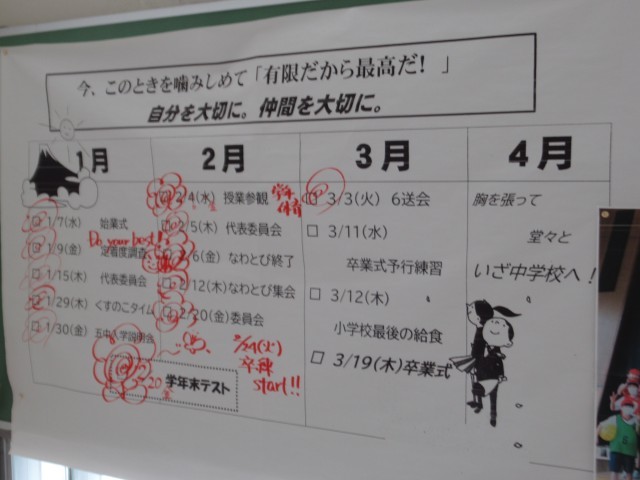 今、このときを噛みしめて「有限だから最高だ！」
自分を大切に。仲間を大切に。
1月
1/7(水) 始業式
Do your best!!
1/9(金) 定着度調査
1/15(木) 代表委員会
1/29(木) くすのこタイム
1/30(金) 五中入学説明会
2月
2/4(水) 授業参観
2/5(木) 代表委員会
2/6(金) なわとび終了
2/12(木) なわとび集会
2/20(金) 委員会
2/24(火)
卒練
start!!
学年末テスト
3月
3/3(火) 6送会
3/11(水)
卒業式予行練習
3/12(木)
小学校最後の給食
3/19(木) 卒業式
4月
胸を張って
堂々と
いざ中学校へ！